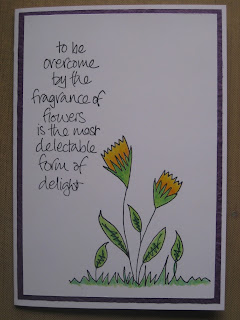 to be
overcome
by the
fragrance of
flowers
is the most
delectable
form of
delight